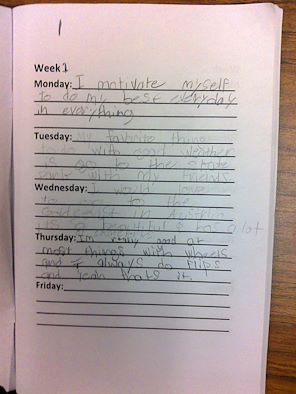 1
Week 1
Monday: I motivate myself
to do my best everyday
in everything
Tuesday: My favorite thing
to do with good weather
is go to the state
park with my friends
Wednesday: I would love
to go to the
in Austria
is a beautiful & has a lot
Thursday: Im really good at
most things with wheels
and I always do flips
and yeah thats it.
Friday: